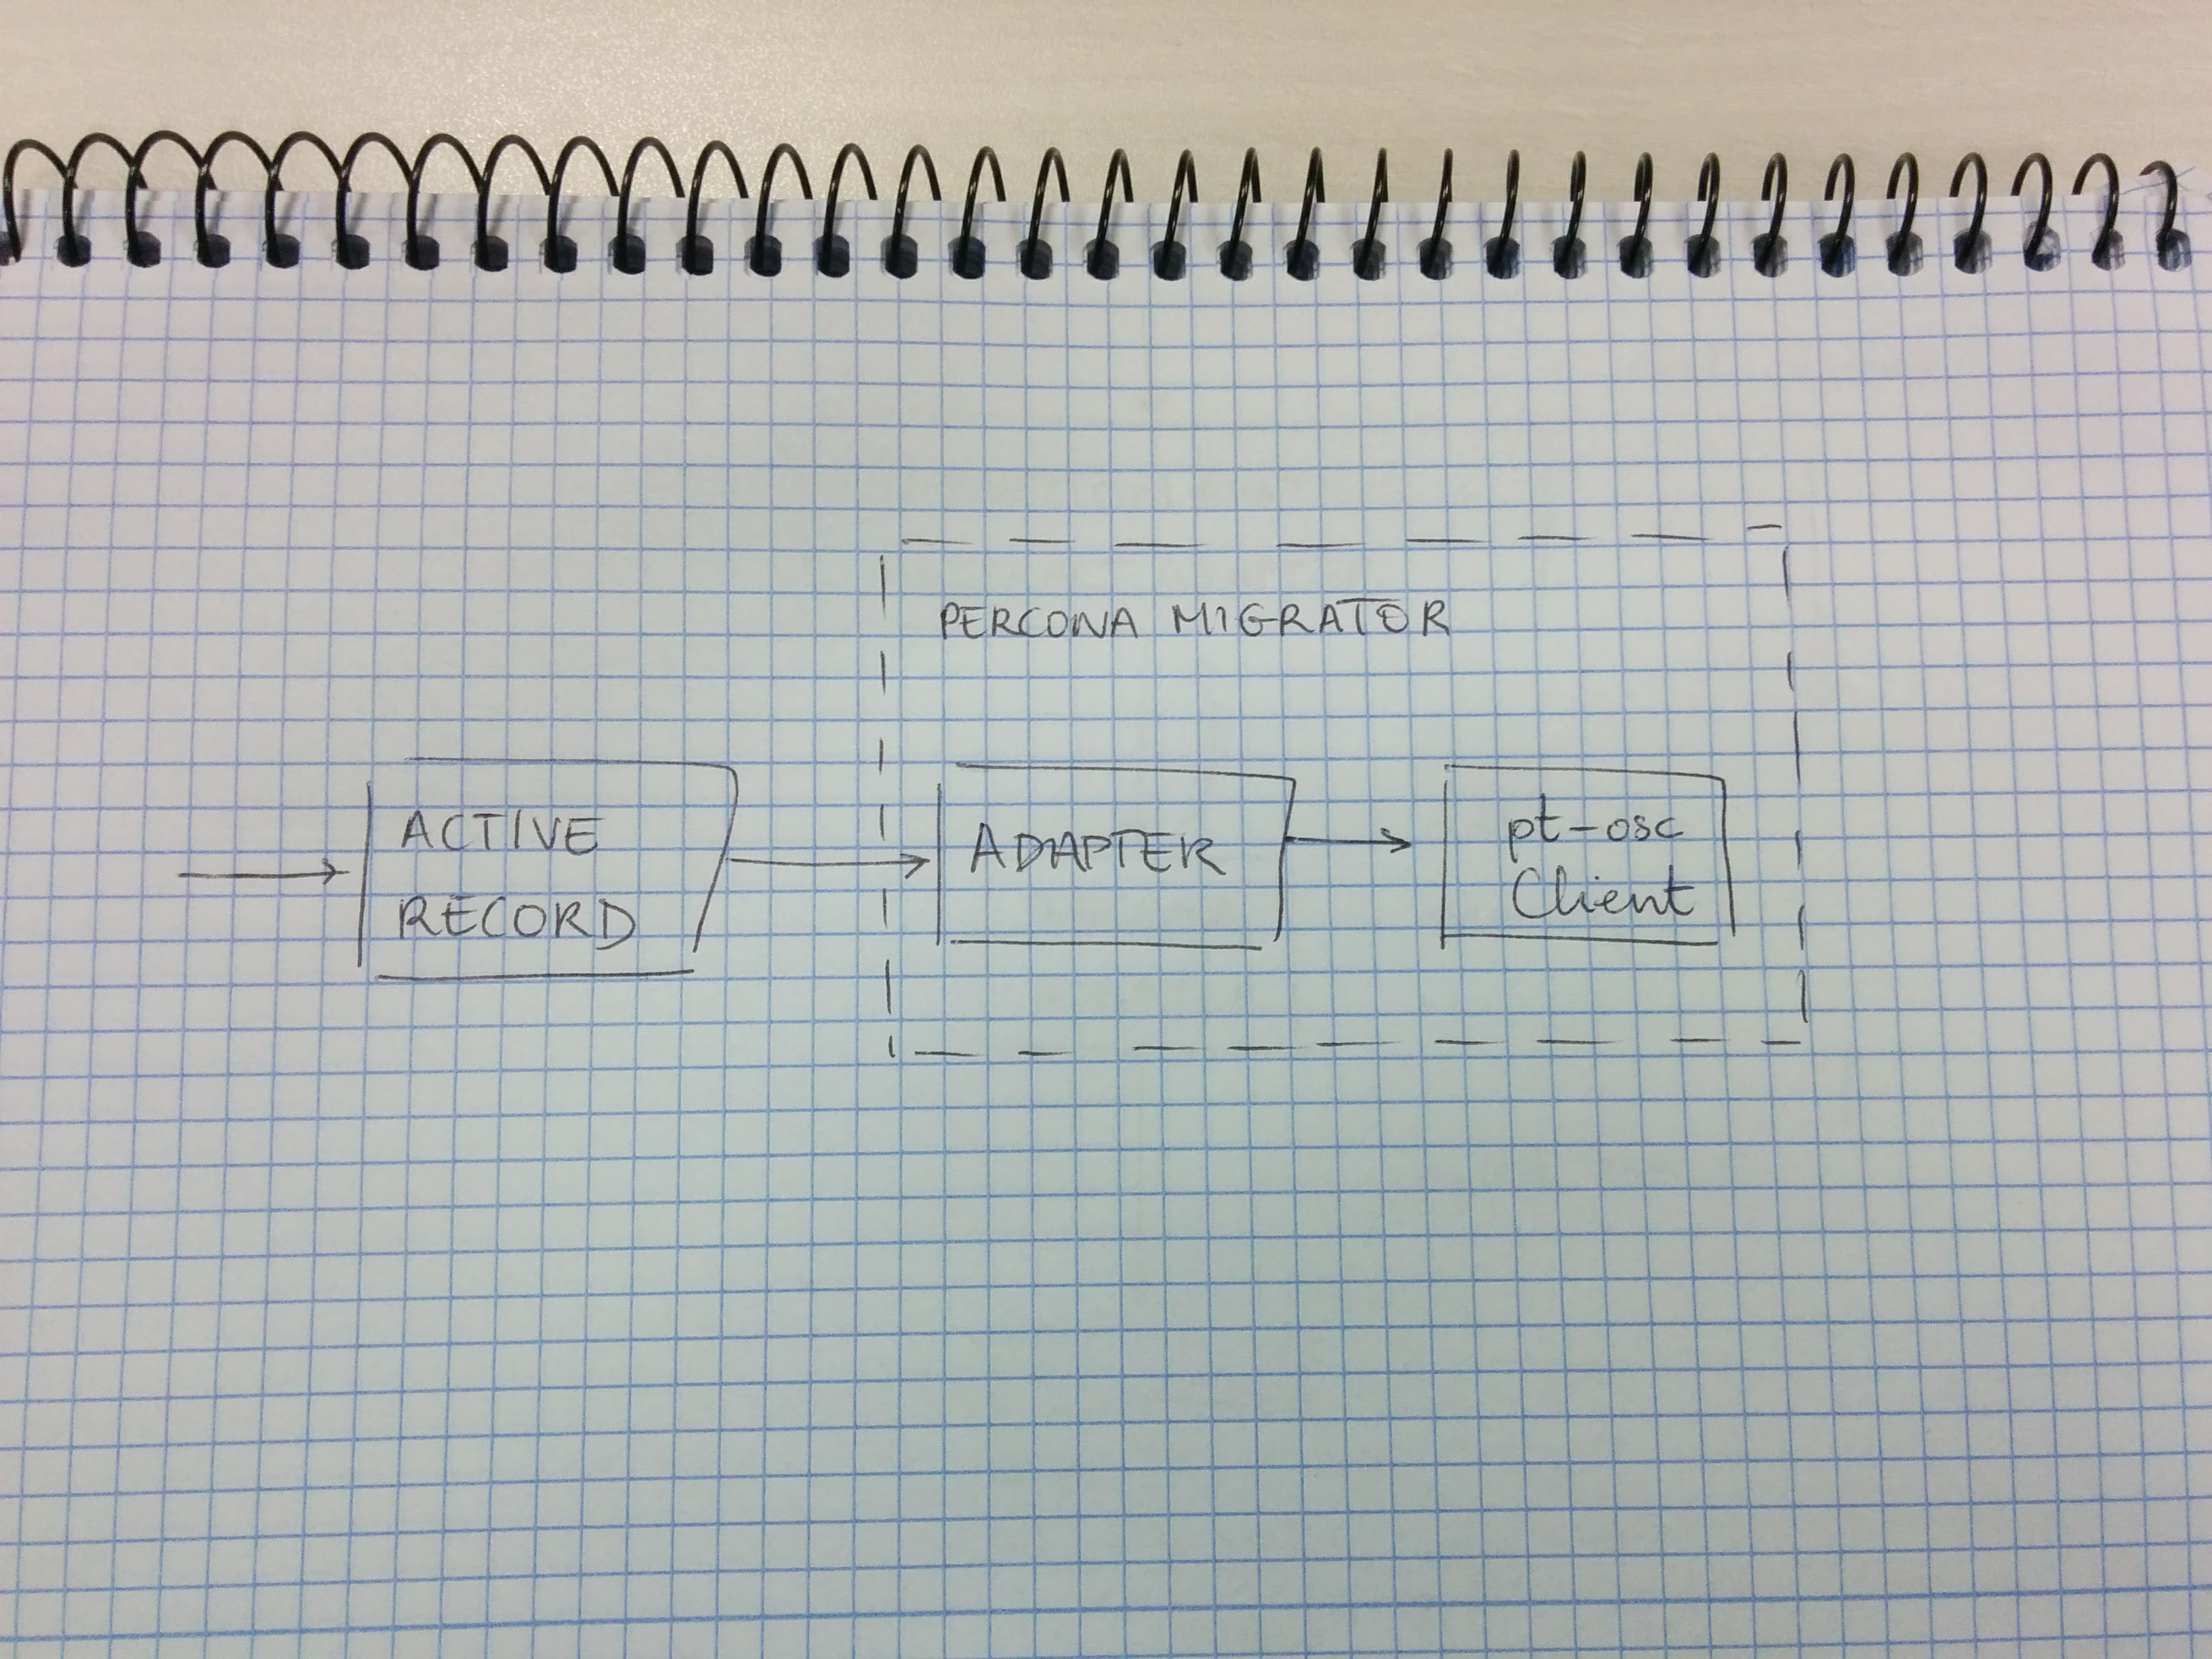 PERCONA MIGRATOR
ACTIVE
RECORD
ADAPTER
pt-osc
Client